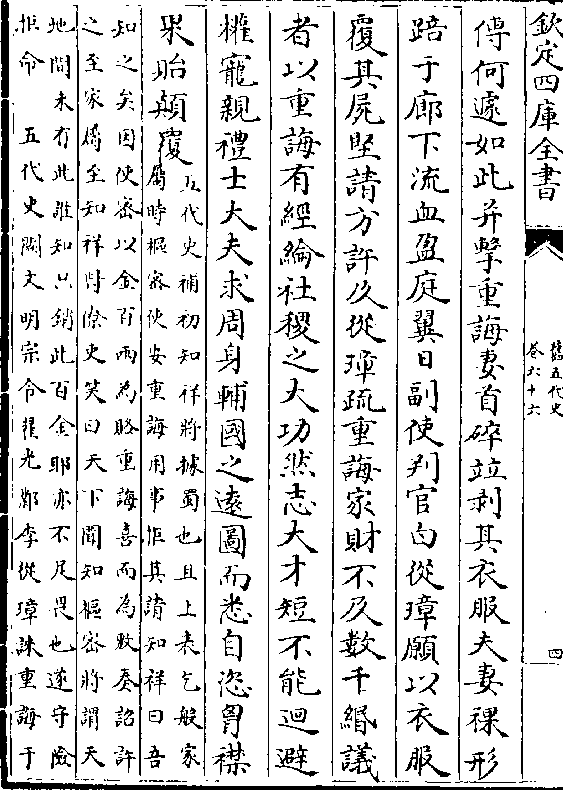 欽定四庫全書
舊五代史
卷六十六
四
傅何遽如此并擊重誨妻首碎竝剥其衣服夫妻裸形
踣于廊下流血盈庭翼日副使判官白從璋願以衣服
覆其屍堅請方許及從璋疏重誨家財不及數千緡議
者以重誨有經綸社稷之大功然志大才短不能迴避
權寵親禮士大夫求周身輔國之遠圖而悉自恣胷襟
果貽顛覆
五代史補初知祥將據蜀也且上表乞般家
屬時樞密使安重誨用事拒其請知祥曰吾
知之矣因使密以金百兩為賂重誨喜而為敷奏詔許
之至家屬至知祥對僚吏笑曰天下聞知樞密將謂天
地間未有此誰知只銷此百金耶亦不足畏也遂守險
拒命　五代史闕文明宗令翟光鄴李從璋誅重誨于